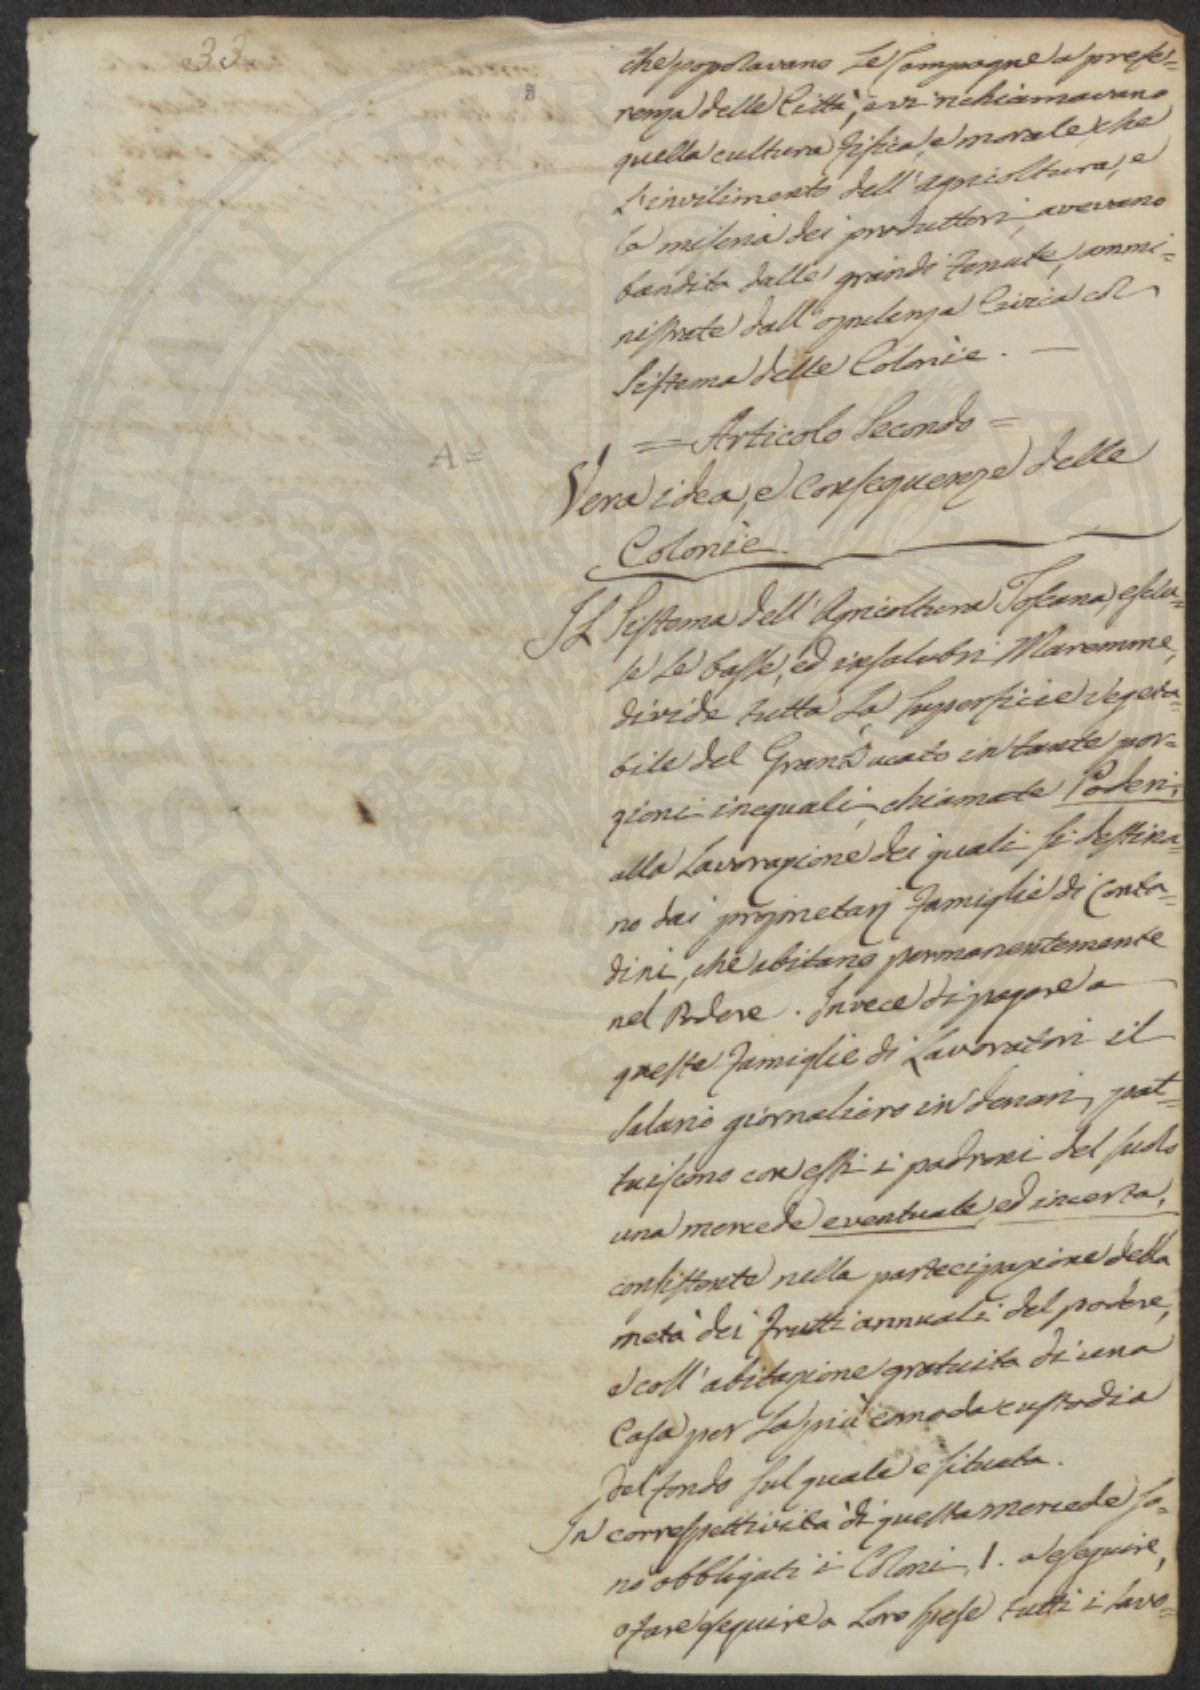 33
che popolavano le Campagne a prefe=
renza delle Città, e vi richiamavano
quella cultura fisica, e morale, che
l'invilimento dell'agricoltura, e
la miseria dei produttori avevano
bandita dalle grandi Tenute, ammi=
nistrate dall'opulenza Civica col
Sistema delle Colonie. —
= Articolo Secondo =
A=
Vera idea, e Conseguenze delle
Colonie.
Il Sistema dell'Agricoltura Toscana, esclu=
se le basse, ed insalubri Maremme,
divide tutta la superficie vegeta=
bile del Granducato in tante por=
zioni ineguali, chiamate Poderi,
alla lavorazione dei quali si destina=
no dai proprietarj famiglie di Conta=
dini, che abitano permanentemente
nel Podere. Invece di pagare a
queste famiglie di Lavoratori il
salario giornaliero in denari, pat=
tuiscono con essi i padroni del suolo
una mercede eventuale, ed incerta,
consistente nella partecipazione della
metà dei frutti annuali del podere,
e coll'abitazione gratuita di una
Casa per la più comoda custodia
del fondo sul quale è situata.
In correspettività di questa mercede so=
no obbligati i Coloni, 1. a eseguire,
o fare eseguire a loro spese tutti i lavo=